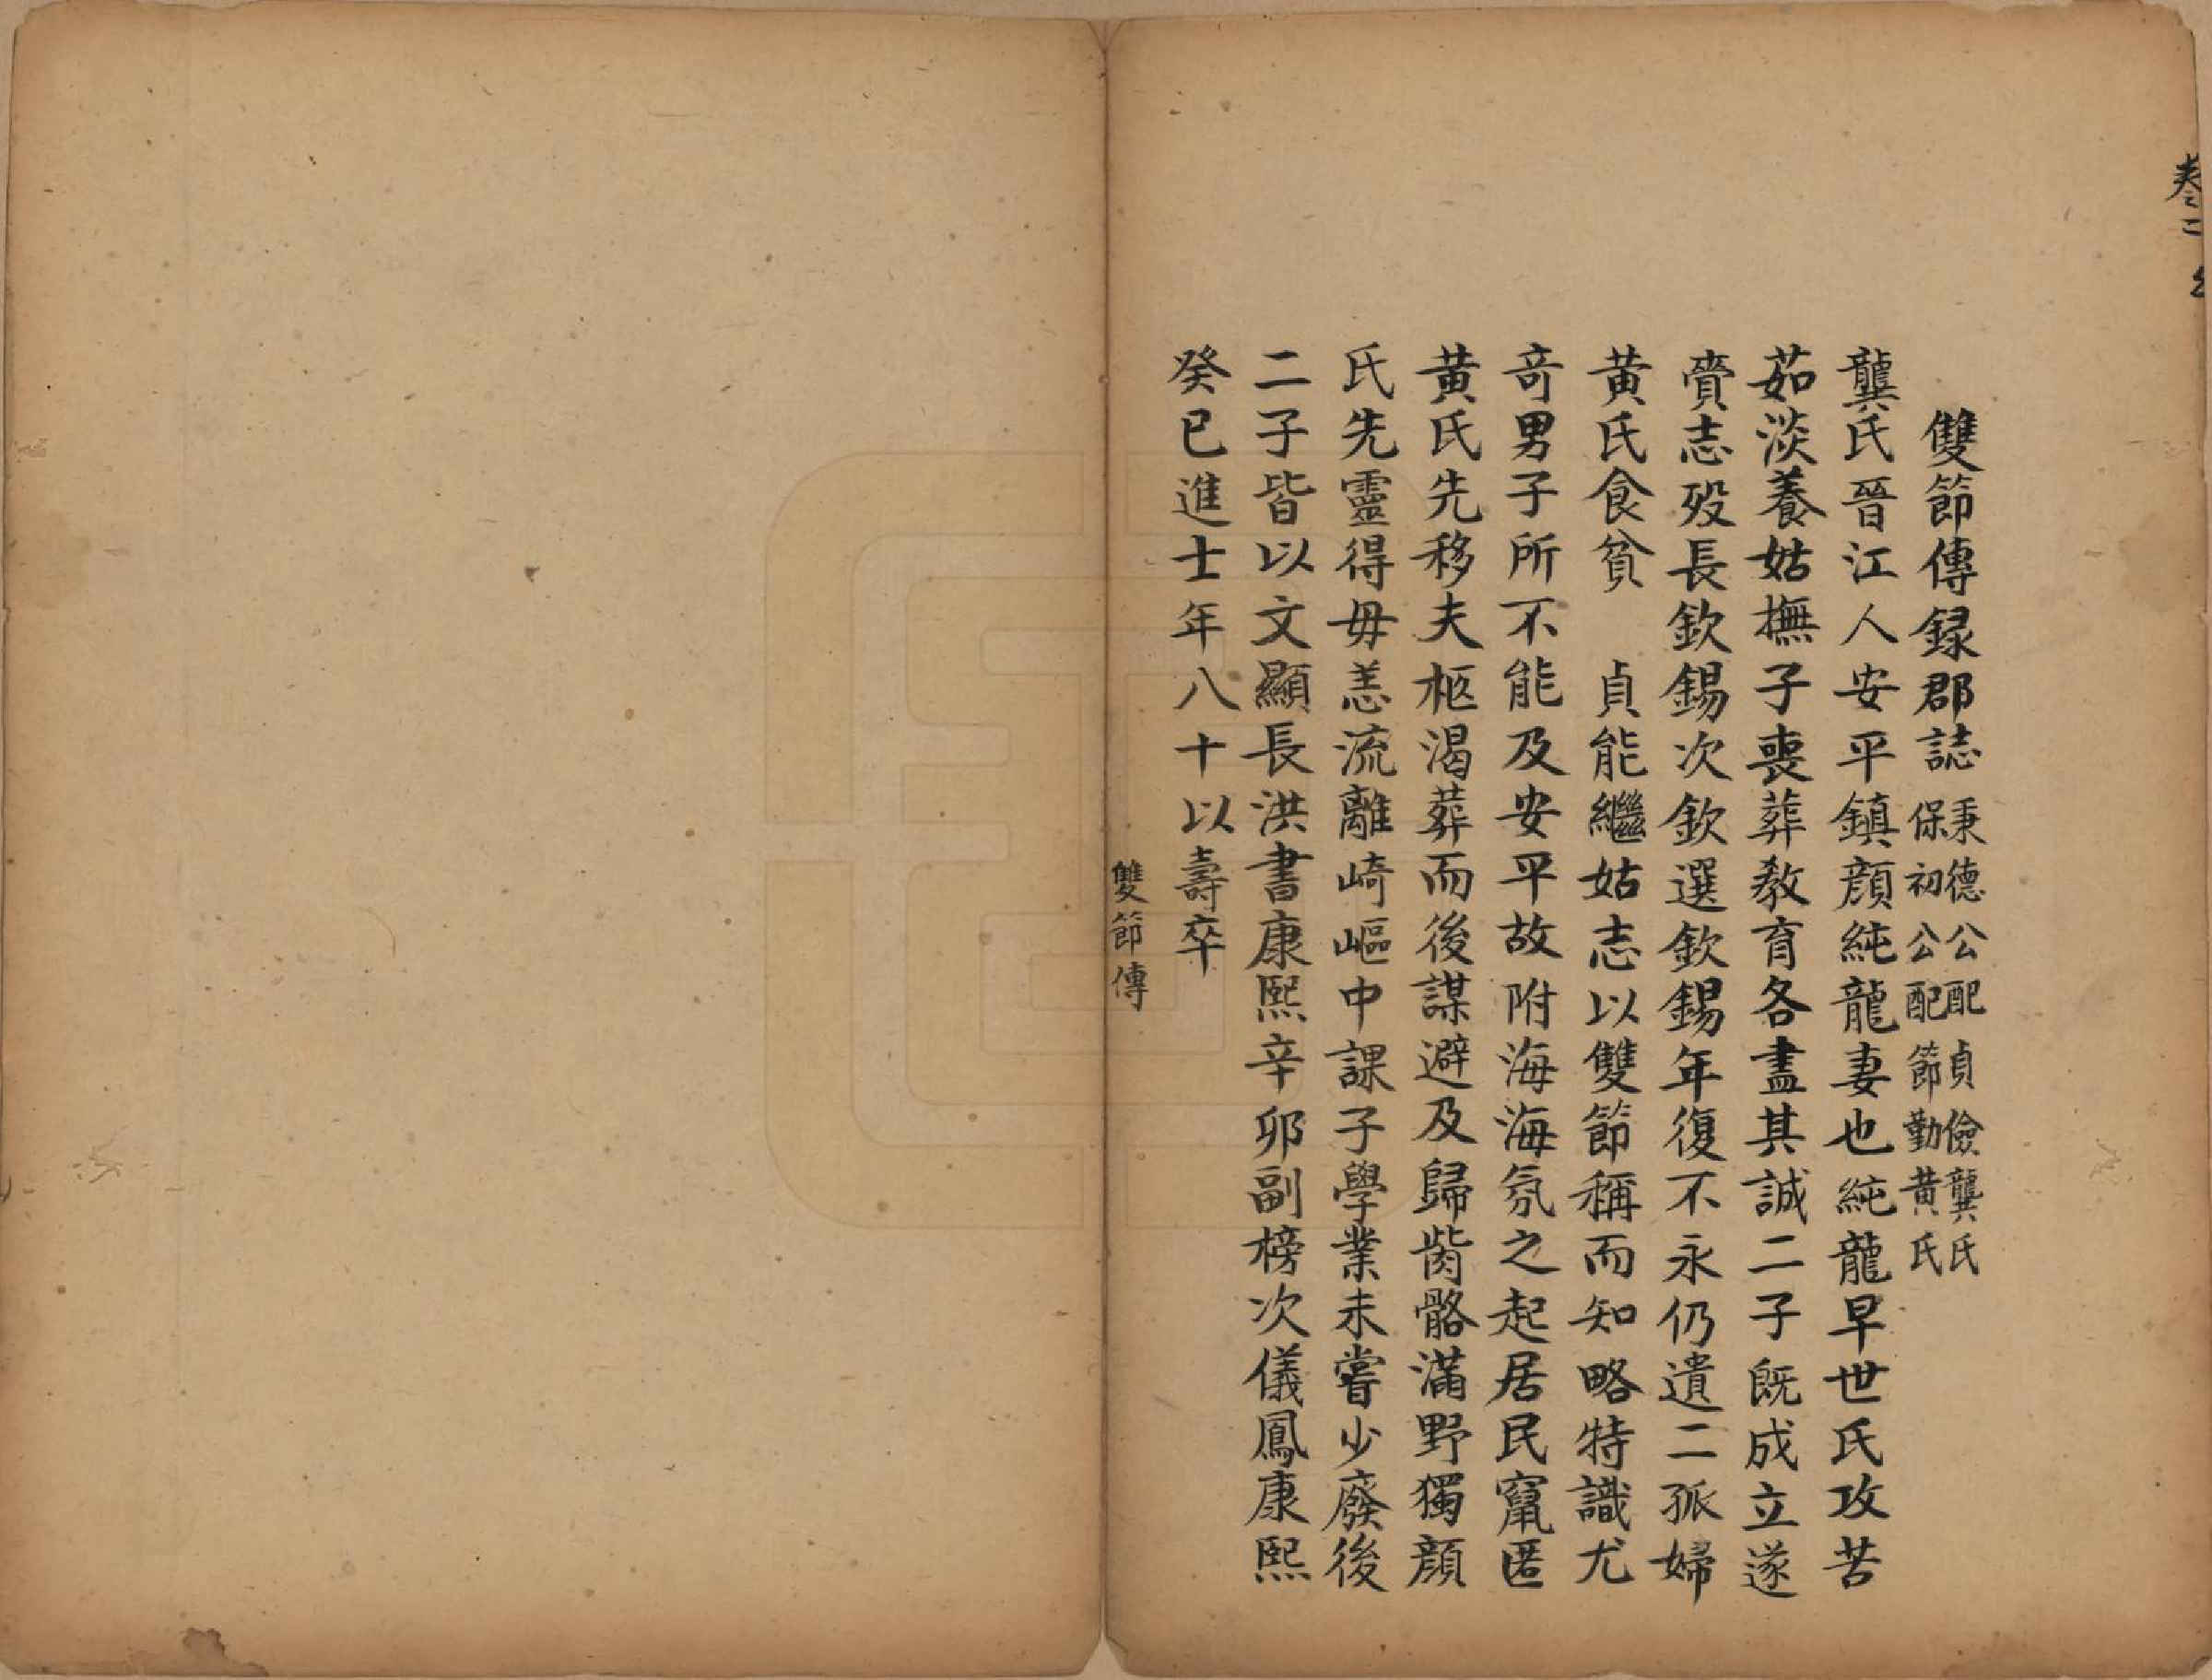 卷二
雙節傳録郡誌 秉德公配貞儉龔氏
保初公配節勤黄氏
龔氏晉江人安平鎮顔純龍妻也純龍早世氏攻苦
茹淡養姑撫子喪葬教育各盡其誠二子既成立遂
賫志歿長欽錫次欽選欽錫年復不永仍遺二孤婦
黄氏食貧 貞能繼姑志以雙節稱而知略特識尤
竒男子所不能及安平故附海海氛之起居民竄匿
黄氏先移夫柩渴葬而後謀避及歸胔骼滿野獨顔
氏先靈得毋恙流離崎嶇中課子學業未嘗少廢後
二子皆以文顯長洪書康熙辛卯副榜次儀鳳康熙
癸巳進士年八十以壽卒
雙節傳